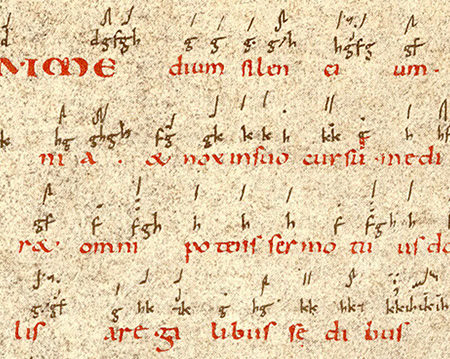 d dgfgh g g g g h hgfg gf
UM ME dium silen ci um·
k hg ghgh fg gk k k h kk g h
ni a · & nox in suo cursu medi
gf f fgh h h h f fgh h h
omni potens sermo tu us do
g gf g hk k g hg kk hk
lis a re ga libus se di bus